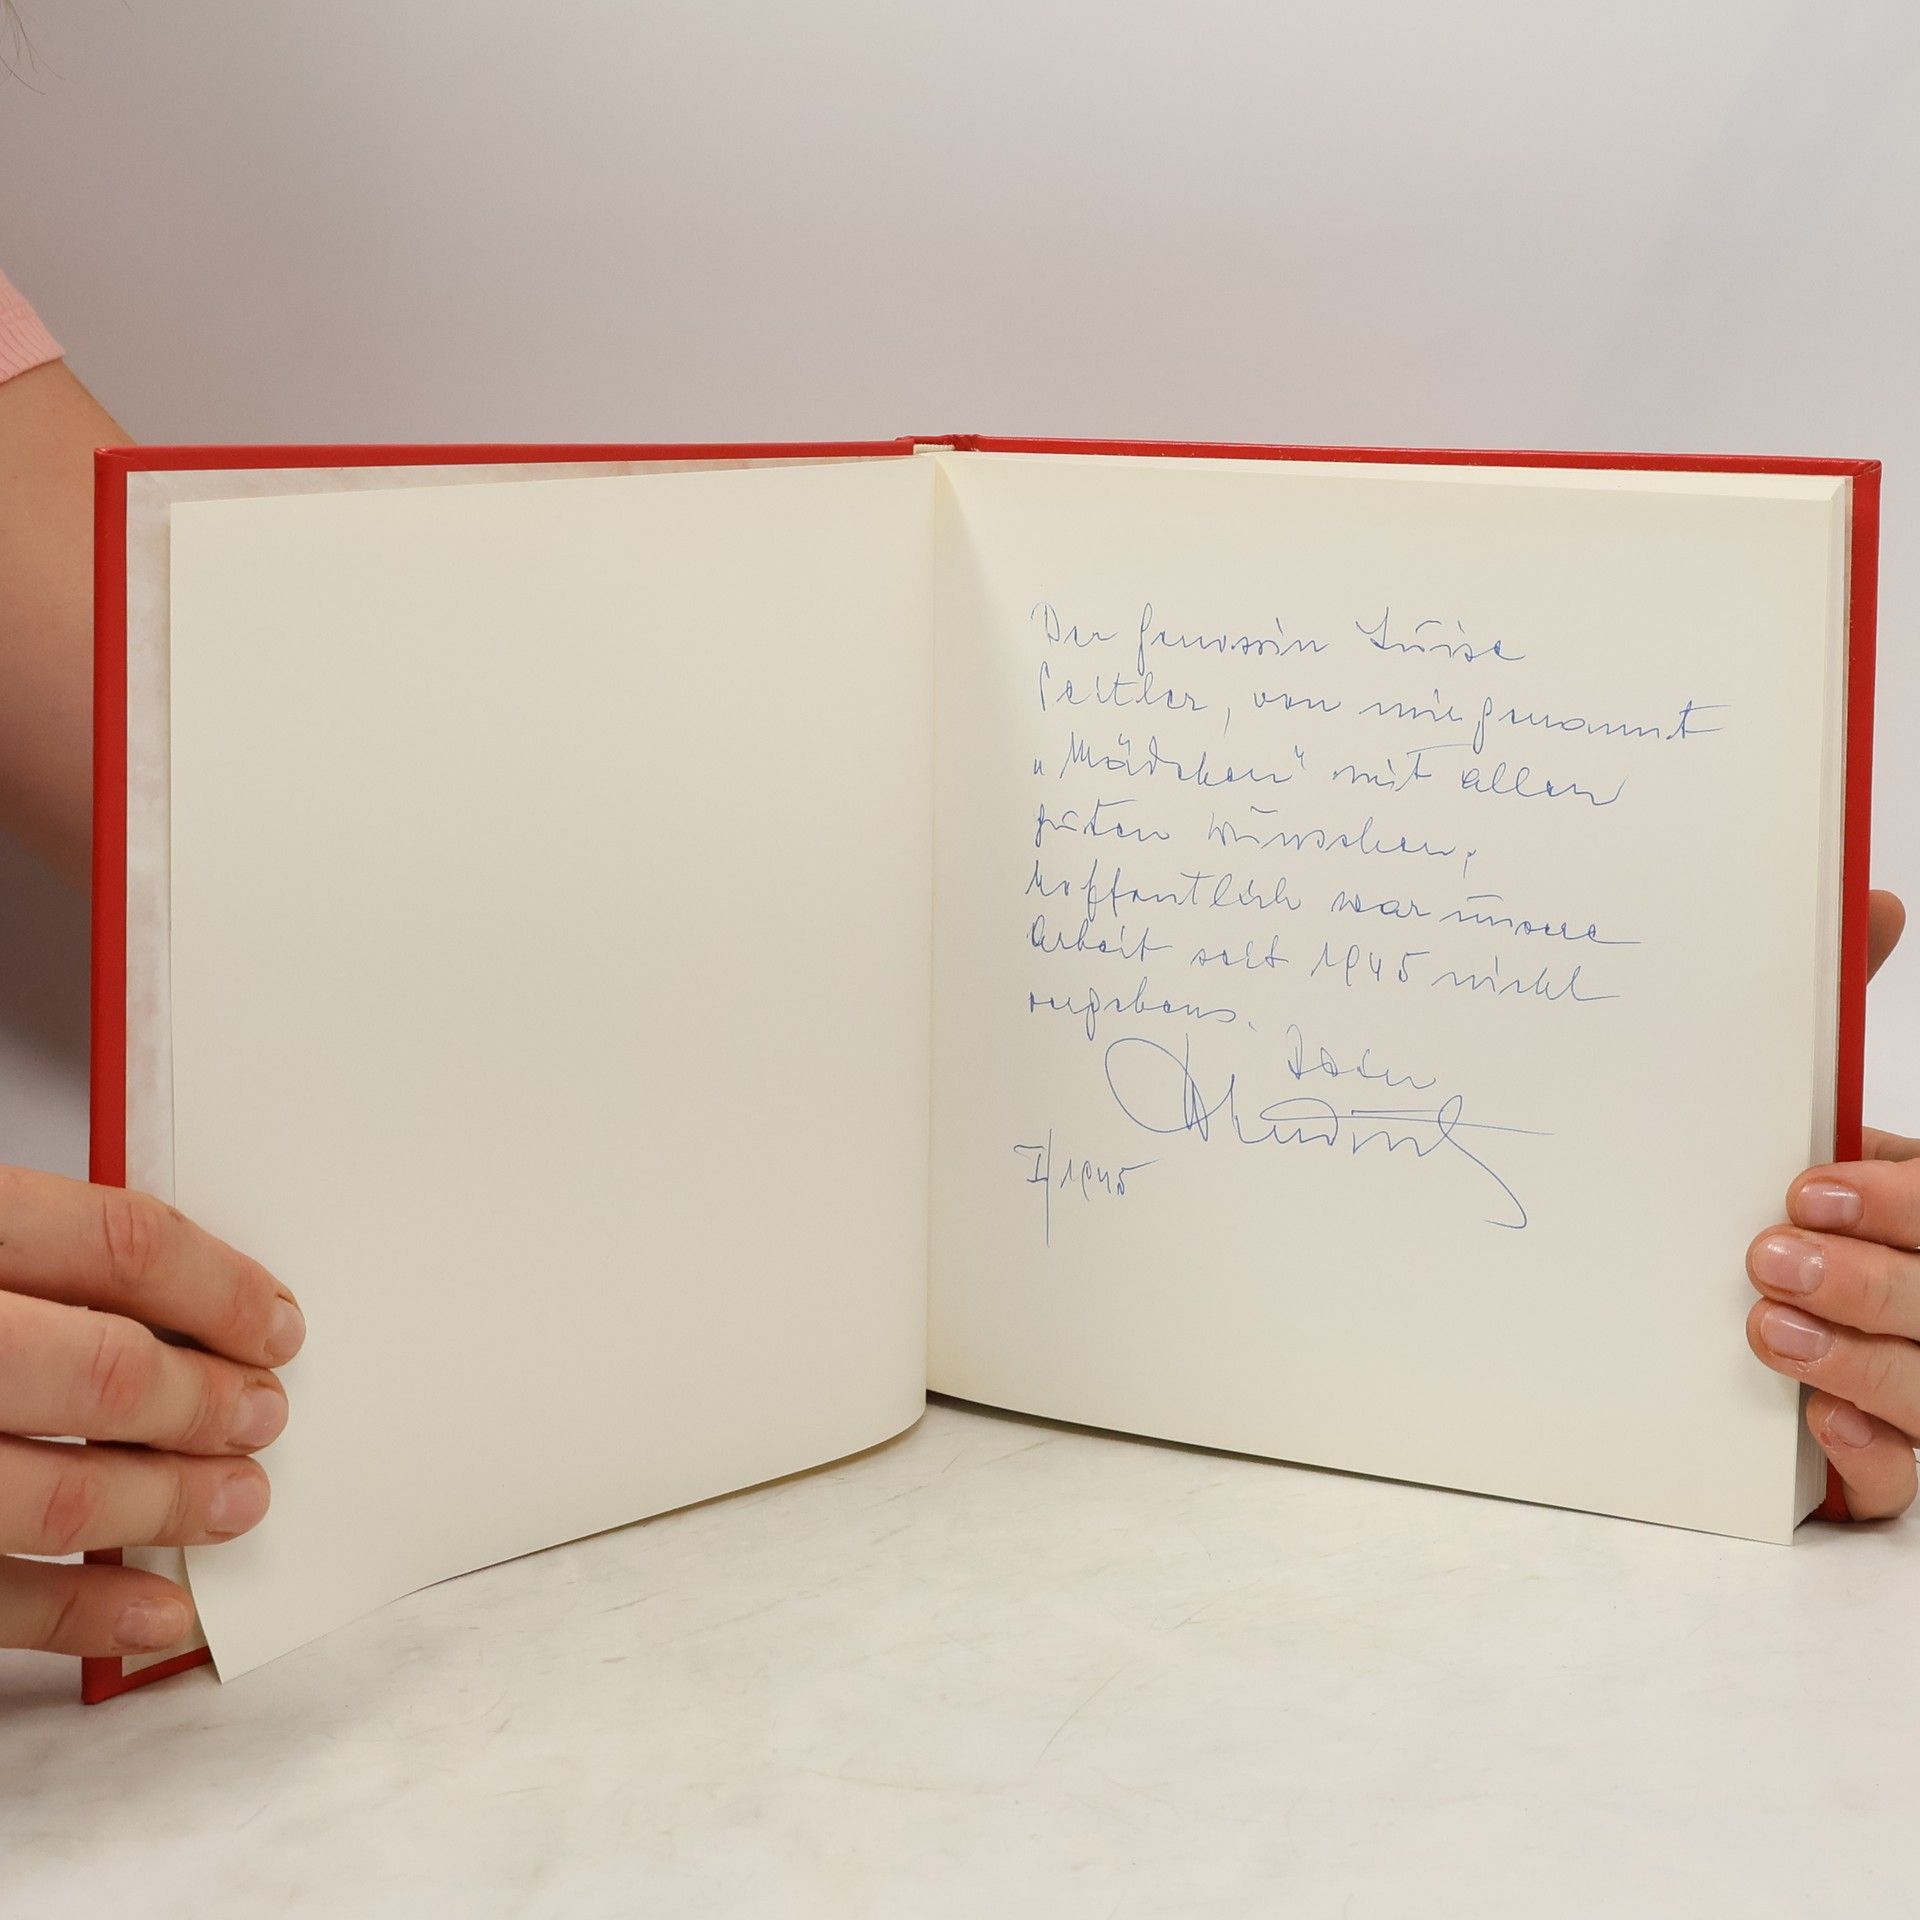 Der Genossin Luise
Peitler, von mir genannt
„Mädchen" mit allen
guten Wünschen,
hoffentlich war unsere
Arbeit seit 1945 nicht
vergebens.
Dein
I/1945